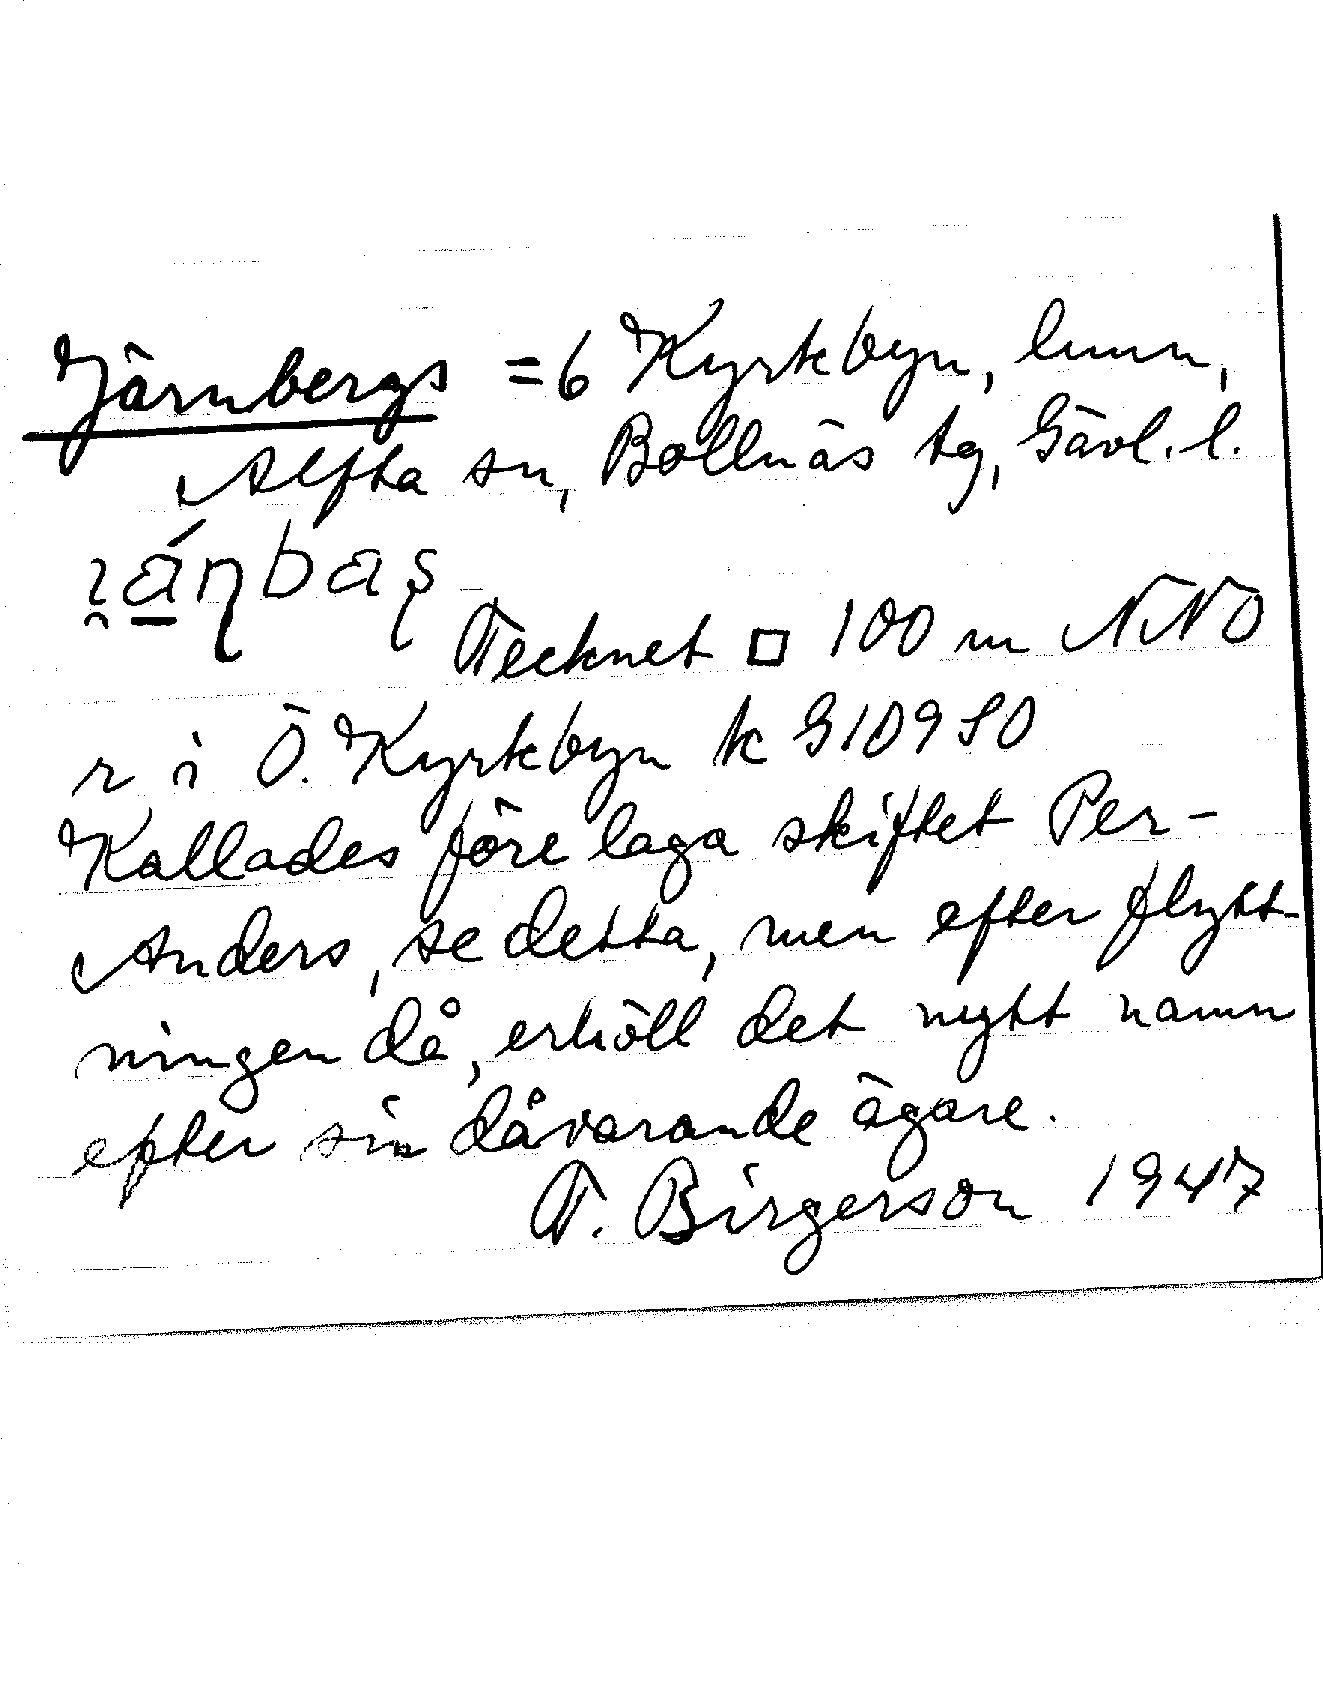 Järnbergs = 6 Kyrkbyn, hmn,
Alfta sn, Bollnäs tg, Gävl. l.
Tecknet □ 100 m NNO
r i Ö. Kyrkbyn k G10950
Kallades före laga skiftet Per-
Anders, se detta, men efter flytt-
ningen då, erhöll det nytt namn
efter sin dåvarande ägare.
T. Birgerson 1947